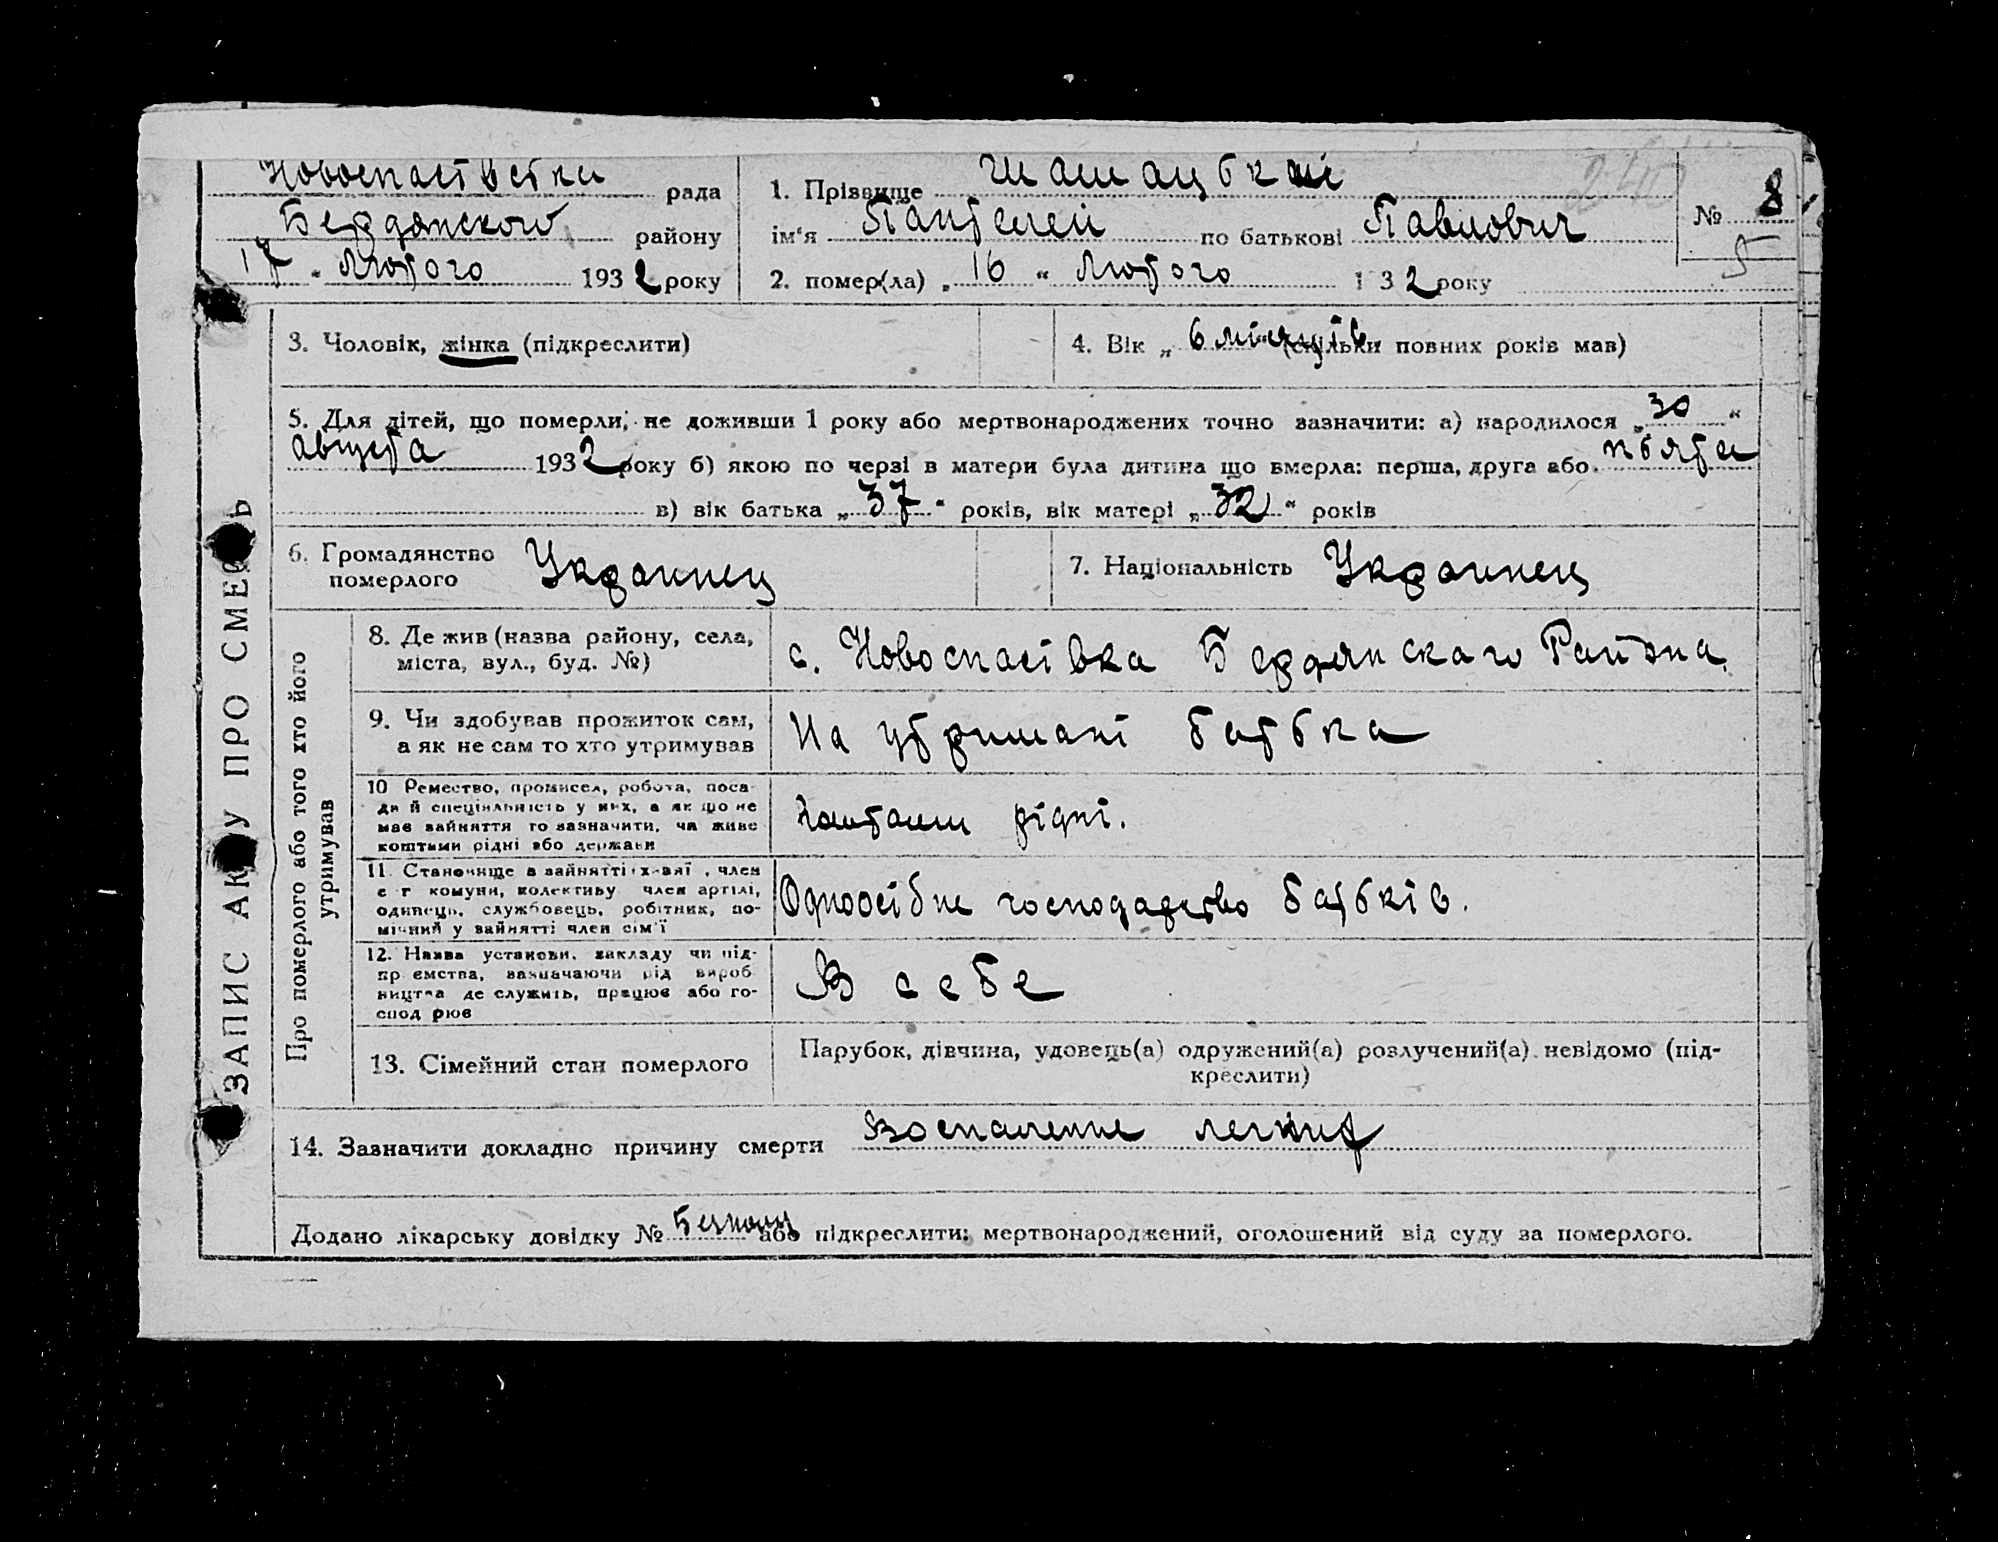 Новоспастівскы рада
Бердянского району
17 " Лютого 1932 року
1. Прізвище Шамацбкий
ім'я Пантелей по батькові Павлович
2. помер(ла) „ 16 " Лютого 1 32 року
№ 8
5
ЗАПИС АКТУ ПРО СМЕРТЬ
3. Чоловік, жінка (підкреслити)
4. Вік „ 6 місяців (скільки повних років мав)
5. Для дітей, що померли, не доживши 1 року або мертвонароджених точно зазначити: а) народилося „ 30 "
августа 1932 року б) якою по черзі в матери була дитина що вмерла: перша, друга або пбята
в) вік батька „ 37 " років, вік матері „ 32 " років
6. Громадянство
померлого Украинец
7. Національність Украинец
Про померлого або того хто його
утримував
8. Де жив (назва району, села,
міста, вул., буд. №)
с. Новоспасівка Бердянскаго Района
9. Чи здобував прожиток сам,
а як не сам то хто утримував
На утримані батбка
10 Ремество, промисел, робота, поса-
ди й спеціяльність у них, а як що не
має зайняття то зазначити, чи живе
коштами рідні або держави
коштами рідні.
11. Становище в зайнятті: хазяї, член
с-г комуни, колективу член артілі,
одинець, службовець, робітник, по-
мічний у зайнятті член сім'ї
Одноосібне господарство батбків.
12. Назва установи, закладу чи під-
приємства, вазначаючи рід вироб
ництва де служить, працює або го-
спод рює
В себе
13. Сімейний стан померлого
Парубок, дівчина, удовець(а) одружений(а) розлучений(а) невідомо (під-
креслити)
14. Зазначити докладно причину смерти Воспаление легких
Додано лікарську довідку № або підкреслити: мертвонароджений, оголошений від суду за померлого.